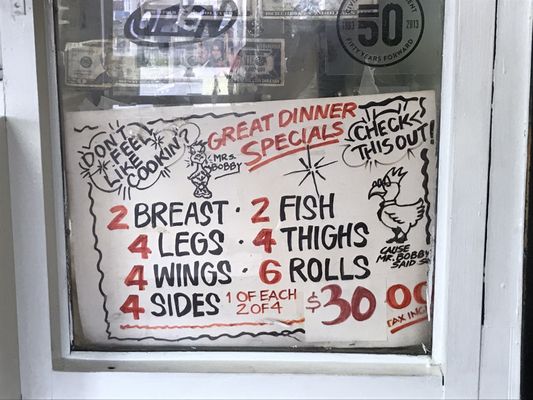 OPEN
1963
DEVELOPMENT
2013
50
FIFTY YEARS FORWARD
GREAT DINNER
SPECIALS
DON'T
FEEL
LIKE
COOKIN'?
MRS.
BOBBY
CHECK
THIS OUT!
2 BREAST · 2 FISH
4 LEGS · 4 THIGHS
4 WINGS · 6 ROLLS
4 SIDES 1 OF EACH
2 OF 4
$30.00
TAX INC
CAUSE
MR. BOBBY
SAID SO